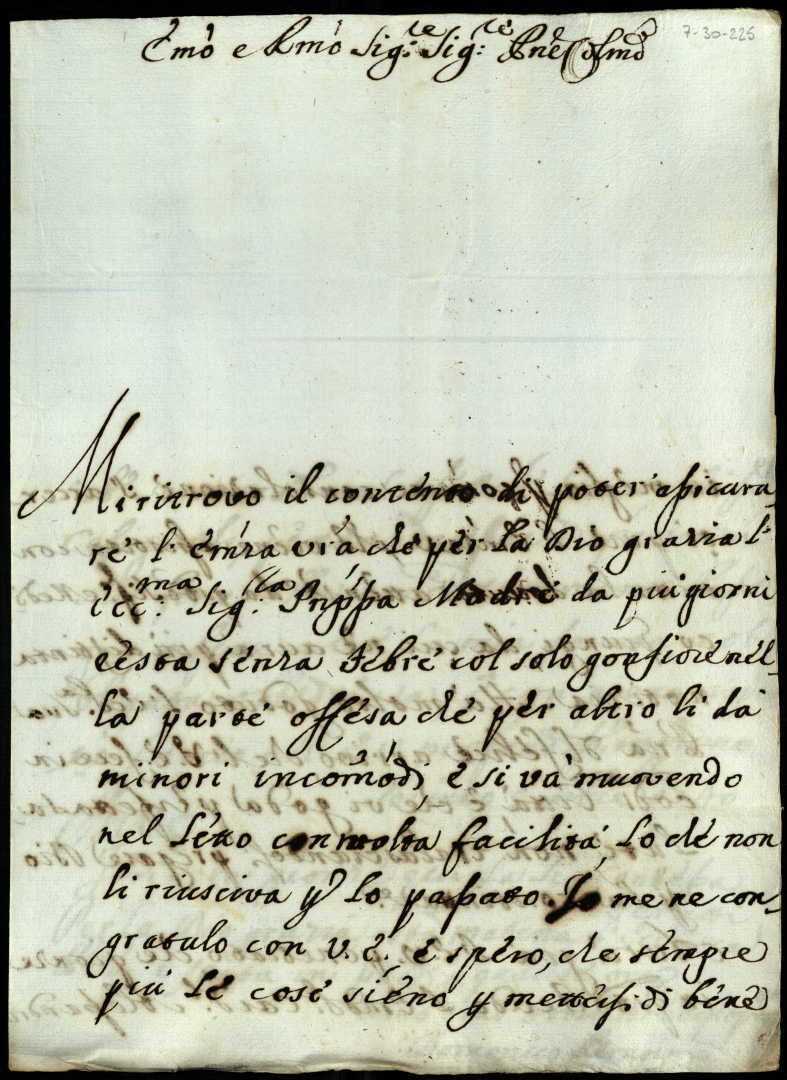 7-30-225
Emo e Rmo Sig.re Sig.re Pne Colmo
Mi ritrovo il contento di poter assicura-
re l'Emza vra che per la Dio grazia l'
Ecc.ma Sig.ra Pnppa Madre da più giorni
resta senza febre col solo gonfiore nel-
la parte offesa che per altro li dà
minori incomodi, e si và muovendo
nel letto con molta facilità, lo che non
li riusciva p lo passato. Io me ne con-
gratulo con V. E., e spero, che sempre
più le cose sieno p mettersi di bene